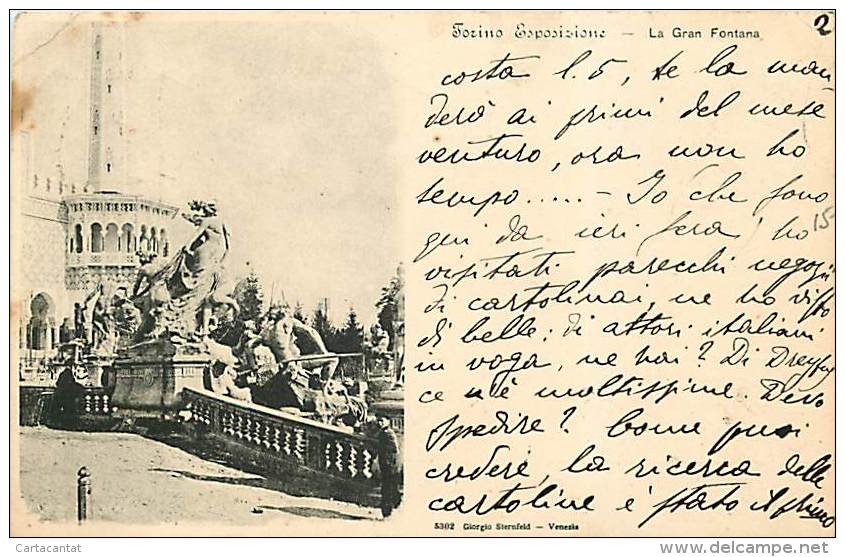 2
Torino Esposizione — La Gran Fontana
costa l. 5, te la man
derò ai primi del mese
venturo, ora non ho
tempo..... — Io che sono
qui da ieri sera ho
15
visitati parecchi negozi
di cartolinai, ne ho visto
di belle; di attori italiani
in voga, ne hai? Di Dreyfus
ce n'è moltissime. Devo
spedire? Come puoi
credere, la ricerca delle
cartoline è stato il primo
5302 Giorgio Sternfeld — Venezia
Cartacantat
delcampe.net